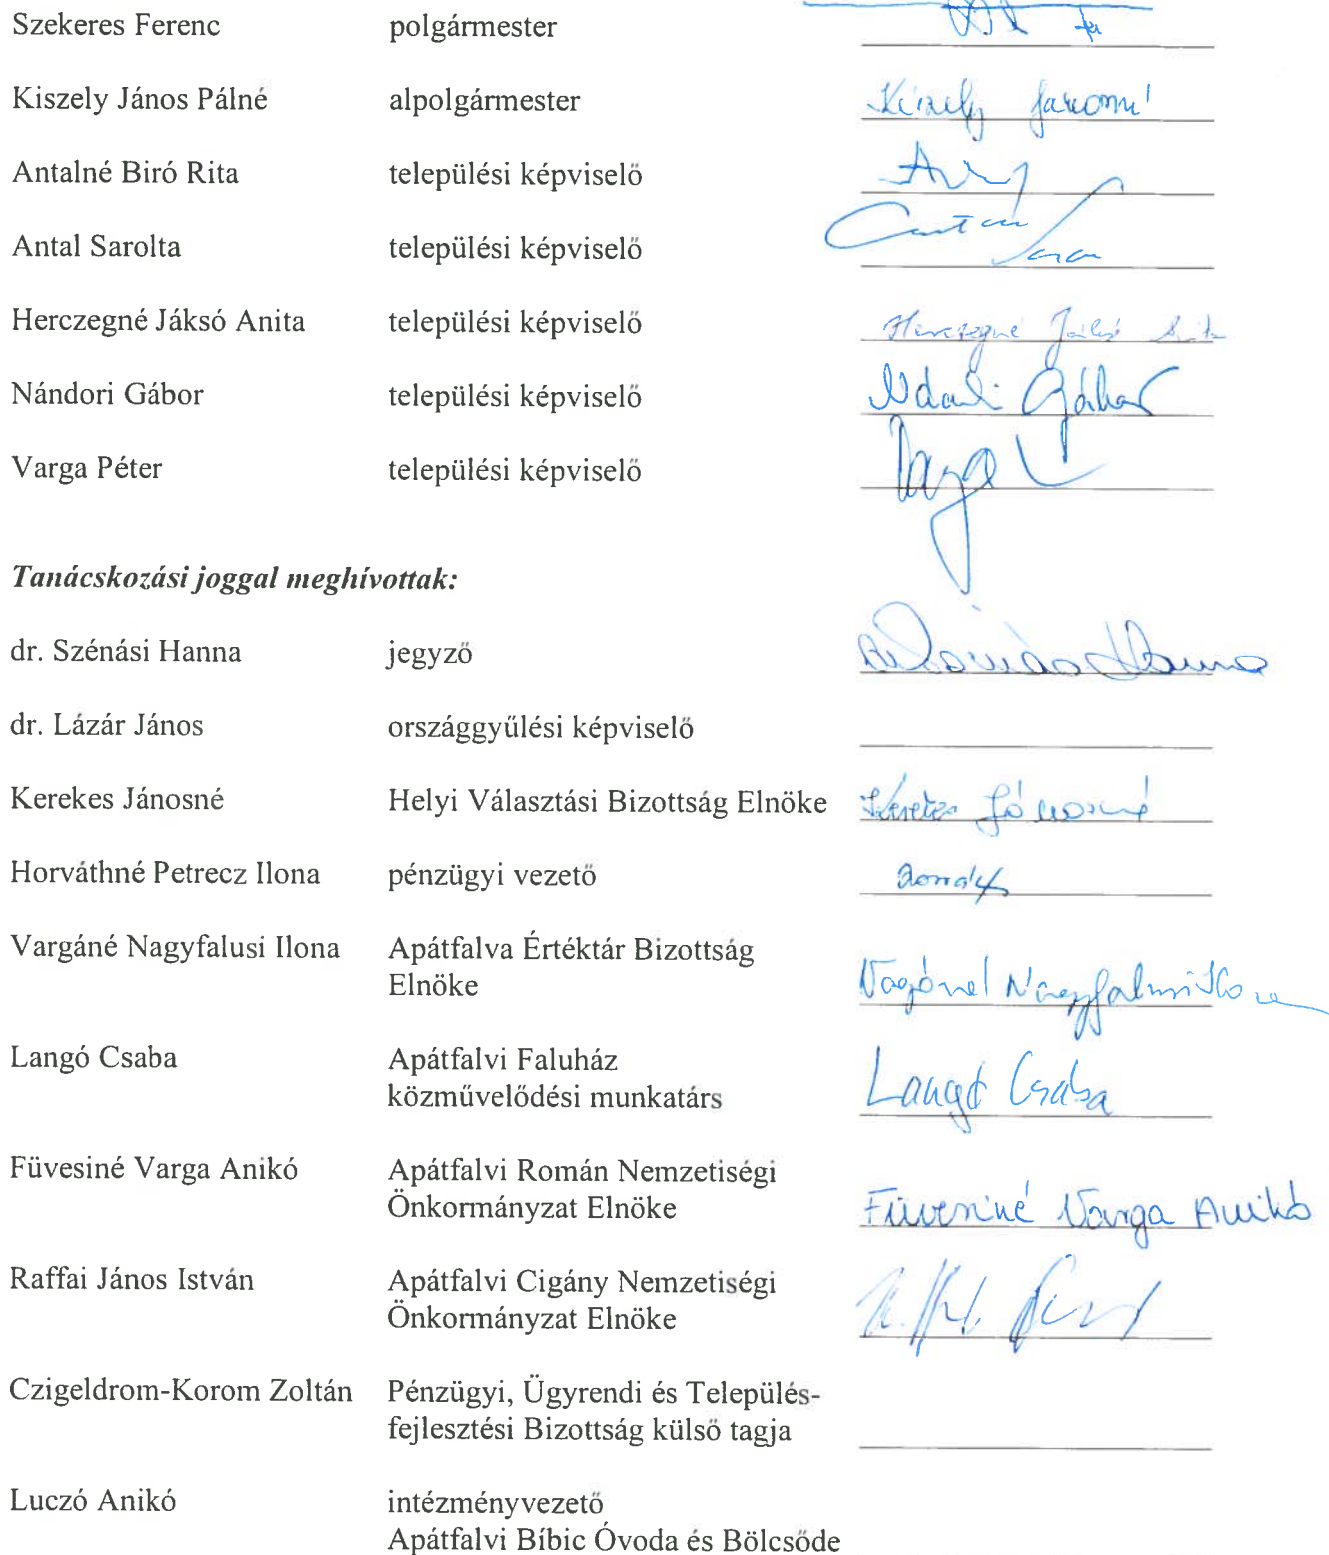 Szekeres Ferenc polgármester
Kiszely János Pálné alpolgármester Kiszely Jánosné
Antalné Biró Rita települési képviselő
Antal Sarolta települési képviselő Antal Sara
Herczegné Jáksó Anita települési képviselő Herczegné Jáksó Anita
Nándori Gábor települési képviselő Nándori Gábor
Varga Péter települési képviselő Varga
Tanácskozási joggal meghívottak:
dr. Szénási Hanna jegyző
dr. Lázár János országgyűlési képviselő
Kerekes Jánosné Helyi Választási Bizottság Elnöke Kerekes Jánosné
Horváthné Petrecz Ilona pénzügyi vezető
Vargáné Nagyfalusi Ilona Apátfalva Értéktár Bizottság
Elnöke Vargáné Nagyfalusi Ilona
Langó Csaba Apátfalvi Faluház
közművelődési munkatárs Langó Csaba
Füvesiné Varga Anikó Apátfalvi Román Nemzetiségi
Önkormányzat Elnöke Füvesiné Varga Anikó
Raffai János István Apátfalvi Cigány Nemzetiségi
Önkormányzat Elnöke
Czigeldrom-Korom Zoltán Pénzügyi, Ügyrendi és Település-
fejlesztési Bizottság külső tagja
Luczó Anikó intézményvezető
Apátfalvi Bíbic Óvoda és Bölcsőde